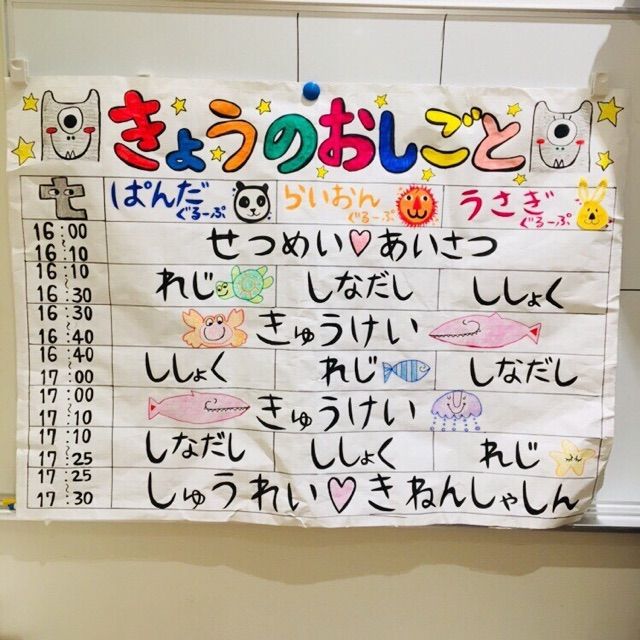 きょうのおしごと
ぱんだぐるーぷ らいおんぐるーぷ うさぎぐるーぷ
16:00~16:10 せつめい♡あいさつ
16:10~16:30 れじ しなだし ししょく
16:30~16:40 きゅうけい
16:40~17:00 ししょく れじ しなだし
17:00~17:10 きゅうけい
17:10~17:25 しなだし ししょく れじ
17:25~17:30 しゅうれい♡きねんしゃしん